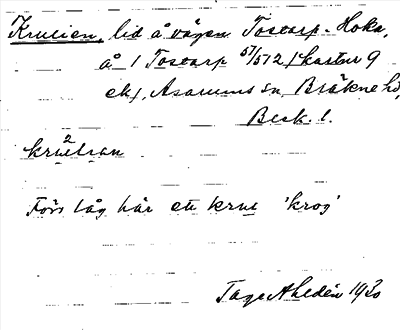 Krueien, lid å vägen Tostarp - Hoka,
å 1 Tostarp 5⁄572 / kartan 9
ek /, Asarums sn, Bräkne hd,
Blek. l.
Förr låg här en krue 'krog'
Tage Ahldén 1930